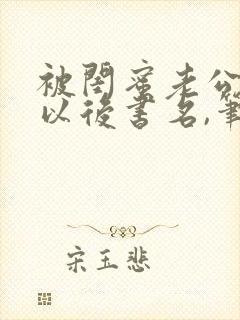 被閨蜜老公
以後書名,筆
宋玉悲